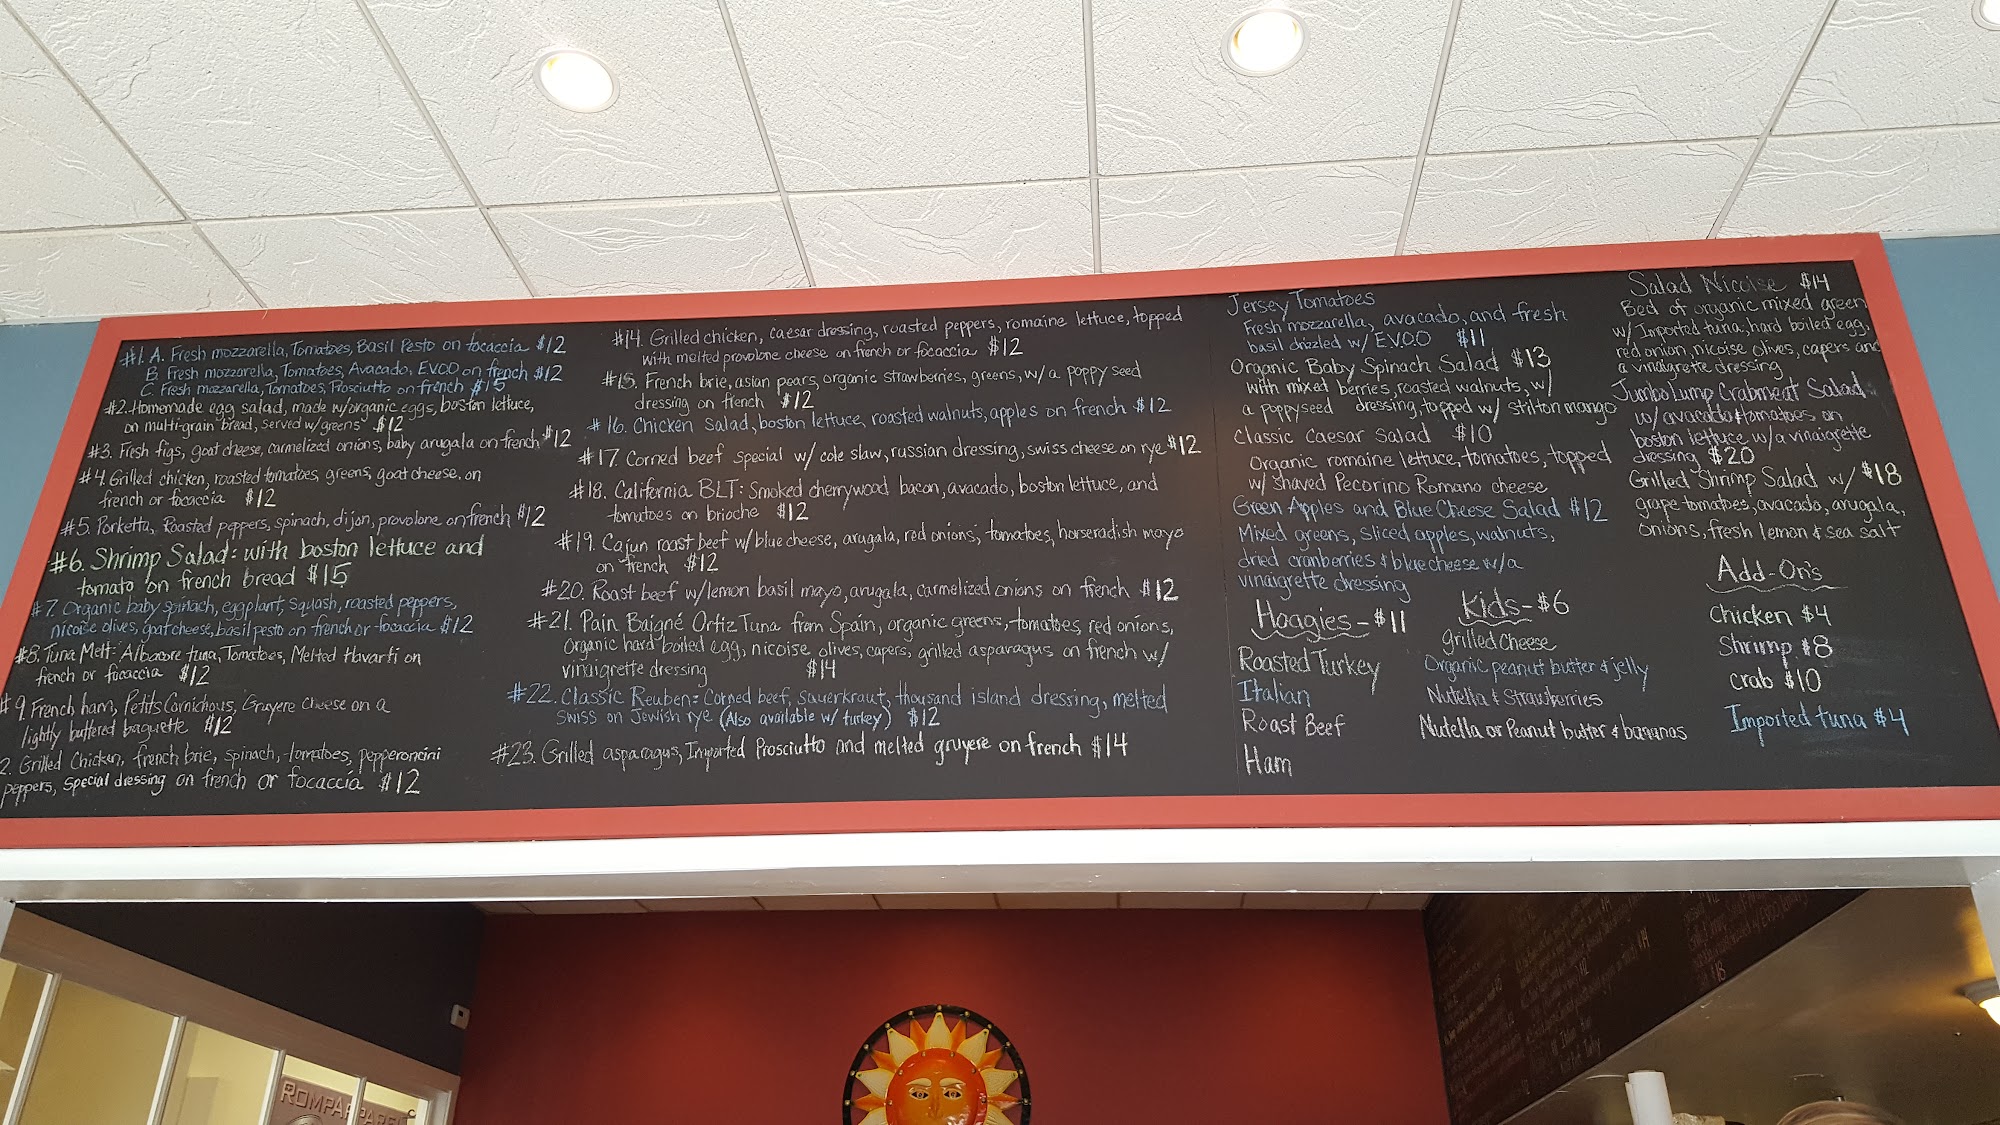 #1. A. Fresh mozzarella, Tomatoes, Basil Pesto on focaccia $12
B. Fresh mozzarella, Tomatoes, Avacado, EVOO on french $12
C. Fresh mozzarella, Tomatoes, Prosciutto on french $15
#2. Homemade egg salad, made w/organic eggs, boston lettuce,
on multi-grain bread, served w/greens $12
#3. Fresh figs, goat cheese, carmelized onions, baby arugala on french $12
#4. Grilled chicken, roasted tomatoes, greens, goat cheese, on
french or focaccia $12
#5. Porketta, Roasted peppers, spinach, dijon, provolone on french $12
#6. Shrimp Salad: with boston lettuce and
tomato on french bread $15
#7. Organic baby spinach, eggplant, squash, roasted peppers,
nicoise olives, goat cheese, basil pesto on french or focaccia $12
#8. Tuna Melt: Albacore tuna, Tomatoes, Melted Havarti on
french or focaccia $12
#9. French ham, Petits Cornichons, Gruyere Cheese on a
lightly buttered baguette $12
2. Grilled Chicken, french brie, spinach, tomatoes, pepperoncini
peppers, special dressing on french or focaccia $12
#14. Grilled chicken, caesar dressing, roasted peppers, romaine lettuce, topped
with melted provolone cheese on french or focaccia $12
#15. French brie, asian pears, organic strawberries, greens, w/a poppy seed
dressing on french $12
#16. Chicken Salad, boston lettuce, roasted walnuts, apples on french $12
#17. Corned beef special w/ cole slaw, russian dressing, swiss cheese on rye $12
#18. California BLT: Smoked cherrywood bacon, avacado, boston lettuce, and
tomatoes on brioche $12
#19. Cajun roast beef w/ blue cheese, arugala, red onions, tomatoes, horseradish mayo
on french $12
#20. Roast beef w/lemon basil mayo, arugala, carmelized onions on french $12
#21. Pain Baigné Ortiz Tuna from Spain, organic greens, tomatoes, red onions,
Organic hard boiled egg, nicoise olives, capers, grilled asparagus on french w/
vinaigrette dressing $14
#22. Classic Reuben: Corned beef, sauerkraut, thousand island dressing, melted
swiss on Jewish rye (Also available w/ turkey) $12
#23. Grilled asparagus, Imported Prosciutto and melted gruyere on french $14
Jersey Tomatoes
Fresh mozzarella, avacado, and fresh
basil drizled w/ EVOO $11
Organic Baby Spinach Salad $13
with mixed berries, roasted walnuts, w/
a poppyseed dressing, topped w/ stilton mango
Classic Caesar Salad $10
Organic romaine lettuce, tomatoes, topped
w/ shaved Pecorino Romano cheese
Green Apples and Blue Cheese Salad $12
Mixed greens, sliced apples, walnuts,
dried cranberries & blue cheese w/a
vinaigrette dressing
Hoagies - $11
Roasted Turkey
Italian
Roast Beef
Ham
Kids - $6
Grilled Cheese
Organic peanut butter & jelly
Nutella & Strawberries
Nutella or Peanut butter & bananas
Salad Nicoise $14
Bed of organic mixed green
w/ Imported tuna, hard boiled egg,
red onion, nicoise olives, capers and
a vinaigrette dressing
Jumbo Lump Crabmeat Salad
w/ avacado & tomatoes on
boston lettuce w/a vinaigrette
dressing $20
Grilled Shrimp Salad w/ $18
grape tomatoes, avacado, arugala,
onions, fresh lemon & sea salt
Add-On's
Chicken $4
Shrimp $8
crab $10
Imported tuna $4